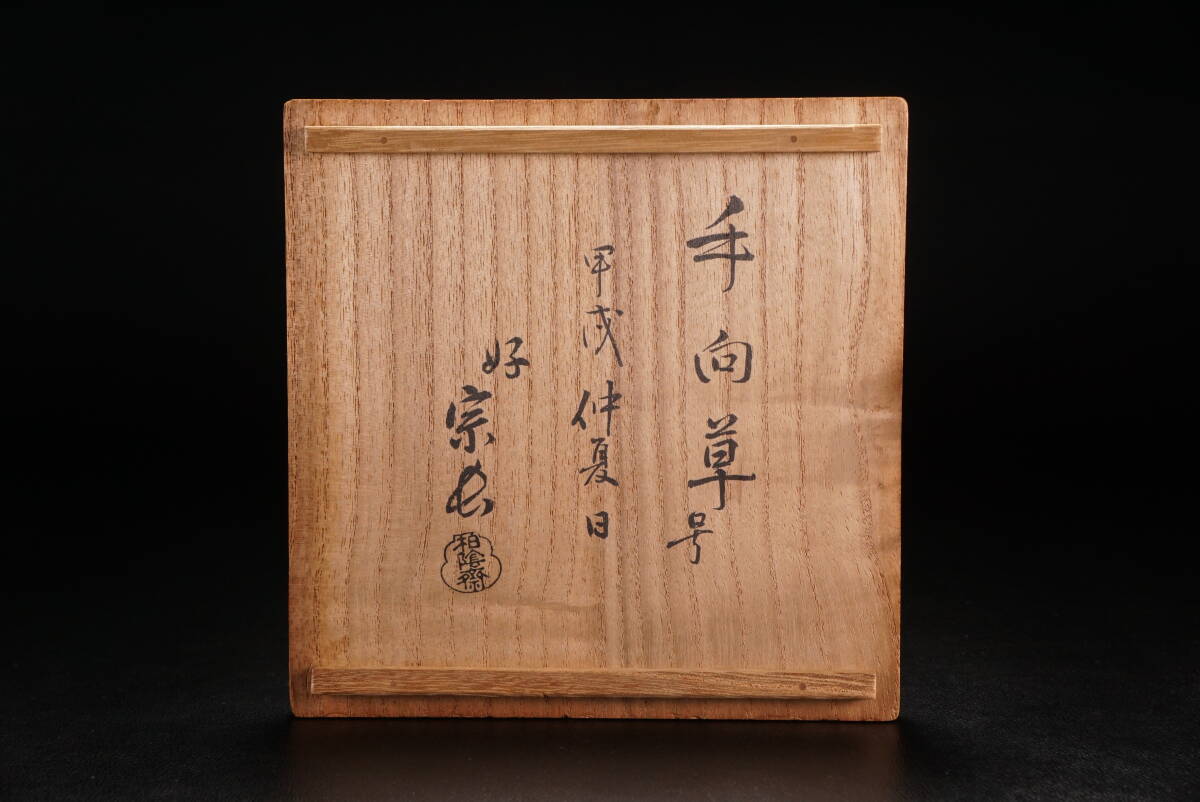 手向草号
甲戌仲夏日
好
宗长
柏陰齋